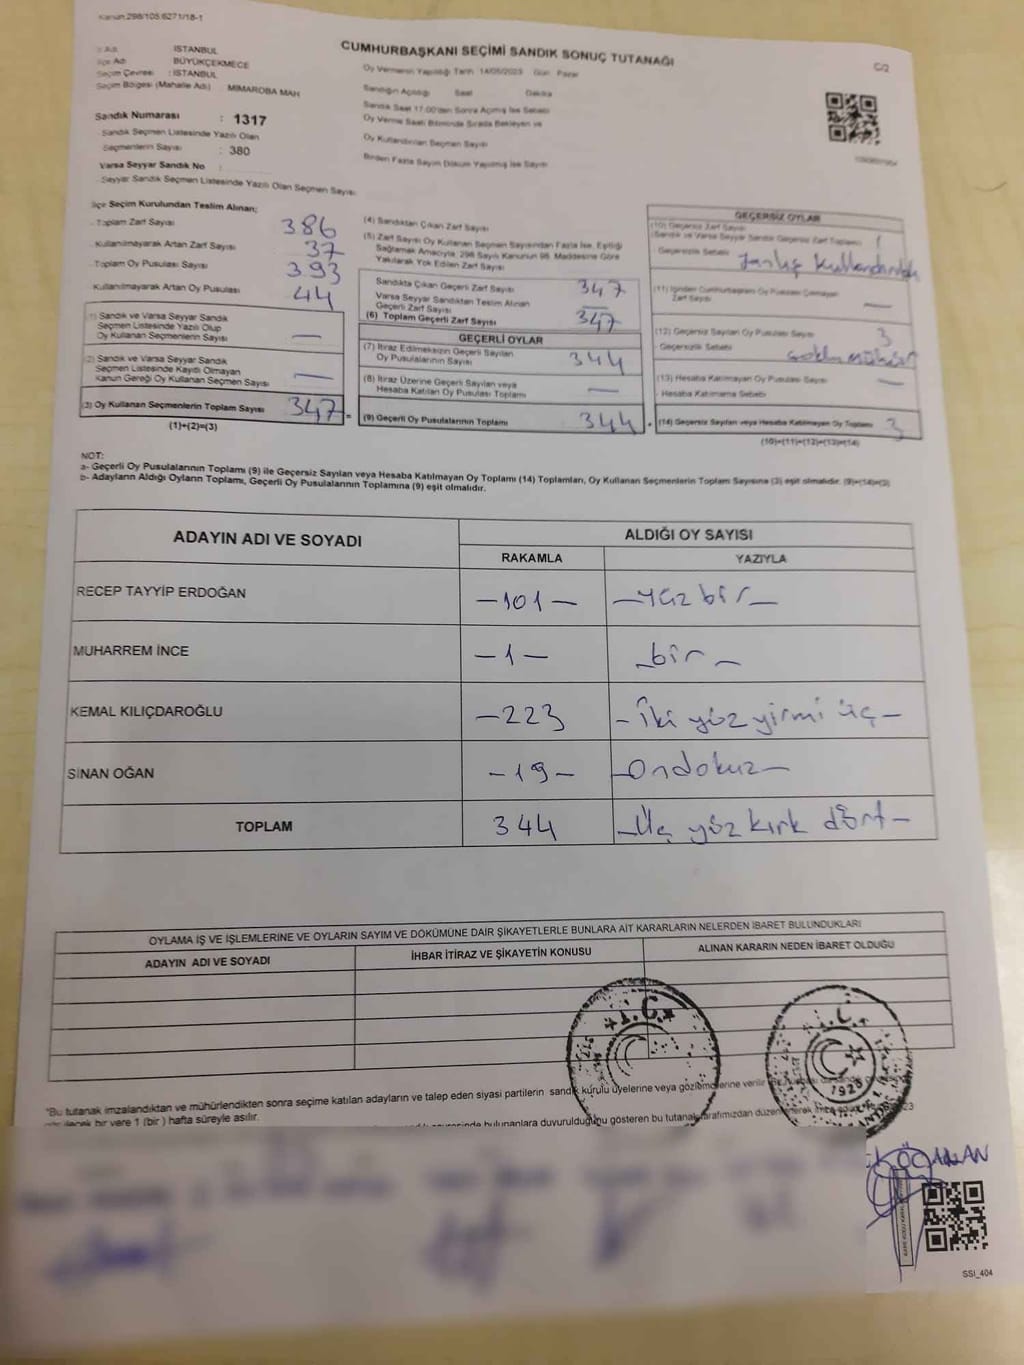 Kanun:298/105,6271/18-1
CUMHURBAŞKANI SEÇİMİ SANDIK SONUÇ TUTANAĞI
C/2
İl Adı İSTANBUL
İlçe Adı BÜYÜKÇEKMECE
Seçim Çevresi : İSTANBUL
Seçim Bölgesi (Mahalle Adı) MİMAROBA MAH
Sandık Numarası : 1317
Sandık Seçmen Listesinde Yazılı Olan
Seçmenlerin Sayısı : 380
Varsa Seyyar Sandık No
Seyyar Sandık Seçmen Listesinde Yazılı Olan Seçmen Sayısı
Oy Vermenin Yapıldığı Tarih 14/05/2023 Gün Pazar
Sandığın Açıldığı Saat Dakika
Sandık Saat 17:00'den Sonra Açılmış İse Sebebi
Oy Verme Saati Bitiminde Sırada Bekleyen ve
Oy Kullandırılan Seçmen Sayısı
Birden Fazla Sayım Döküm Yapılmış İse Sayısı
İlçe Seçim Kurulundan Teslim Alınan;
Toplam Zarf Sayısı 386
Kullanılmayarak Artan Zarf Sayısı 37
Toplam Oy Pusulası Sayısı 393
Kullanılmayarak Artan Oy Pusulası 44
(1) Sandık ve Varsa Seyyar Sandık
Seçmen Listesinde Yazılı Olup
Oy Kullanan Seçmenlerin Sayısı —
(2) Sandık ve Varsa Seyyar Sandık
Seçmen Listesinde Kaydı Olmayan
Kanun Gereği Oy Kullanan Seçmen Sayısı —
(3) Oy Kullanan Seçmenlerin Toplam Sayısı 347 =
(1)+(2)=(3)
(4) Sandıktan Çıkan Zarf Sayısı
(5) Zarf Sayısı Oy Kullanan Seçmen Sayısından Fazla İse, Eşitliği
Sağlamak Amacıyla; 298 Sayılı Kanunun 98. Maddesine Göre
Yakılarak Yok Edilen Zarf Sayısı
Sandıkta Çıkan Geçerli Zarf Sayısı 347
Varsa Seyyar Sandıktan Teslim Alınan
Geçerli Zarf Sayısı
(6) Toplam Geçerli Zarf Sayısı 347
GEÇERLİ OYLAR
(7) İtiraz Edilmeksizin Geçerli Sayılan
Oy Pusulalarının Sayısı 344
(8) İtiraz Üzerine Geçerli Sayılan veya
Hesaba Katılan Oy Pusulası Toplamı —
(9) Geçerli Oy Pusulalarının Toplamı 344 +
GEÇERSİZ OYLAR
(10) Geçersiz Zarf Sayısı
(Sandık ve Varsa Seyyar Sandık Geçersiz Zarf Toplamı)
Geçersizlik Sebebi Yanlış
(11) İçinden Cumhurbaşkanı Oy Pusulası Çıkmayan
Zarf Sayısı —
(12) Geçersiz Sayılan Oy Pusulası Sayısı 3
- Geçersizlik Sebebi
(13) Hesaba Katılmayan Oy Pusulası Sayısı —
- Hesaba Katılmama Sebebi
(14) Geçersiz Sayılan veya Hesaba Katılmayan Oy Toplamı 3
(10)+(11)+(12)+(13)=(14)
NOT:
a- Geçerli Oy Pusulalarının Toplamı (9) ile Geçersiz Sayılan veya Hesaba Katılmayan Oy Toplamı (14) Toplamları, Oy Kullanan Seçmenlerin Toplam Sayısına (3) eşit olmalıdır. (9)+(14)=(3)
b- Adayların Aldığı Oyların Toplamı, Geçerli Oy Pusulalarının Toplamına (9) eşit olmalıdır.
ADAYIN ADI VE SOYADI
ALDIĞI OY SAYISI
RAKAMLA YAZIYLA
RECEP TAYYİP ERDOĞAN –101– –yüz bir–
MUHARREM İNCE –1– –bir–
KEMAL KILIÇDAROĞLU –223 –İki yüz yirmi üç–
SİNAN OĞAN –19– –Ondokuz–
TOPLAM 344 –Üç yüz kırk dört–
OYLAMA İŞ VE İŞLEMLERİNE VE OYLARIN SAYIM VE DÖKÜMÜNE DAİR ŞİKAYETLERLE BUNLARA AİT KARARLARIN NELERDEN İBARET BULUNDUKLARI
ADAYIN ADI VE SOYADI İHBAR İTİRAZ VE ŞİKAYETİN KONUSU ALINAN KARARIN NEDEN İBARET OLDUĞU
T.C.
T.C.
1928
"Bu tutanak imzalandıktan ve mühürlendikten sonra seçime katılan adayların ve talep eden siyasi partilerin sandık kurulu üyelerine veya gözlemcilerine verilir
bir yere 1 (bir) hafta süreyle asılır.
bulunanlara duyurulduğunu gösteren bu tutanak tarafımızdan
SSI_404